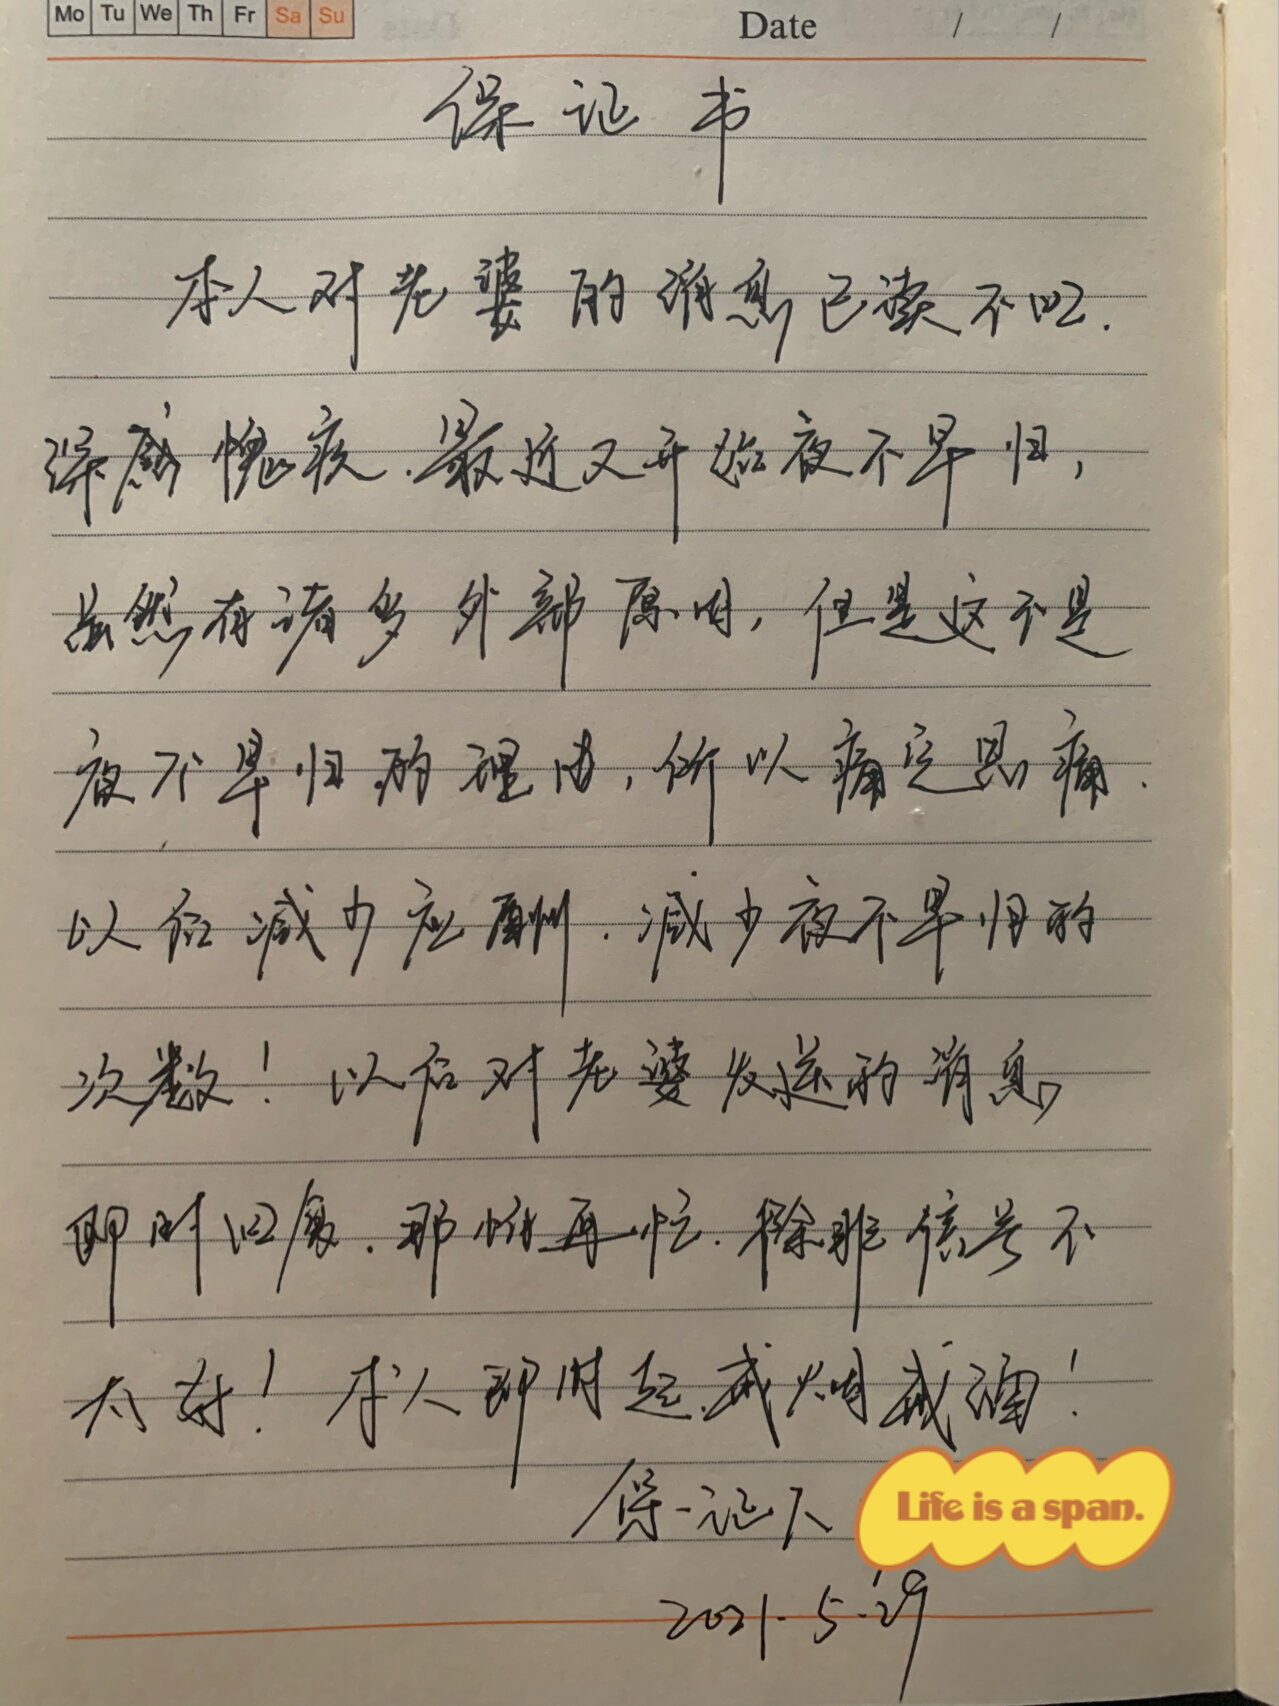 Mo Tu We Th Fr Sa Su
Date / /
保证书
本人对老婆的消息已读不回.
深感愧疚.最近又开始夜不早归,
虽然有诸多外部原因,但是这不是
夜不早归的理由,所以痛定思痛.
以后减少应酬.减少夜不早归的
次数!以后对老婆发送的消息
即时回复.那怕再忙.除非信号不
太好!本人即时起戒烟戒酒!
保证人
Life is a span.
2021.5.29